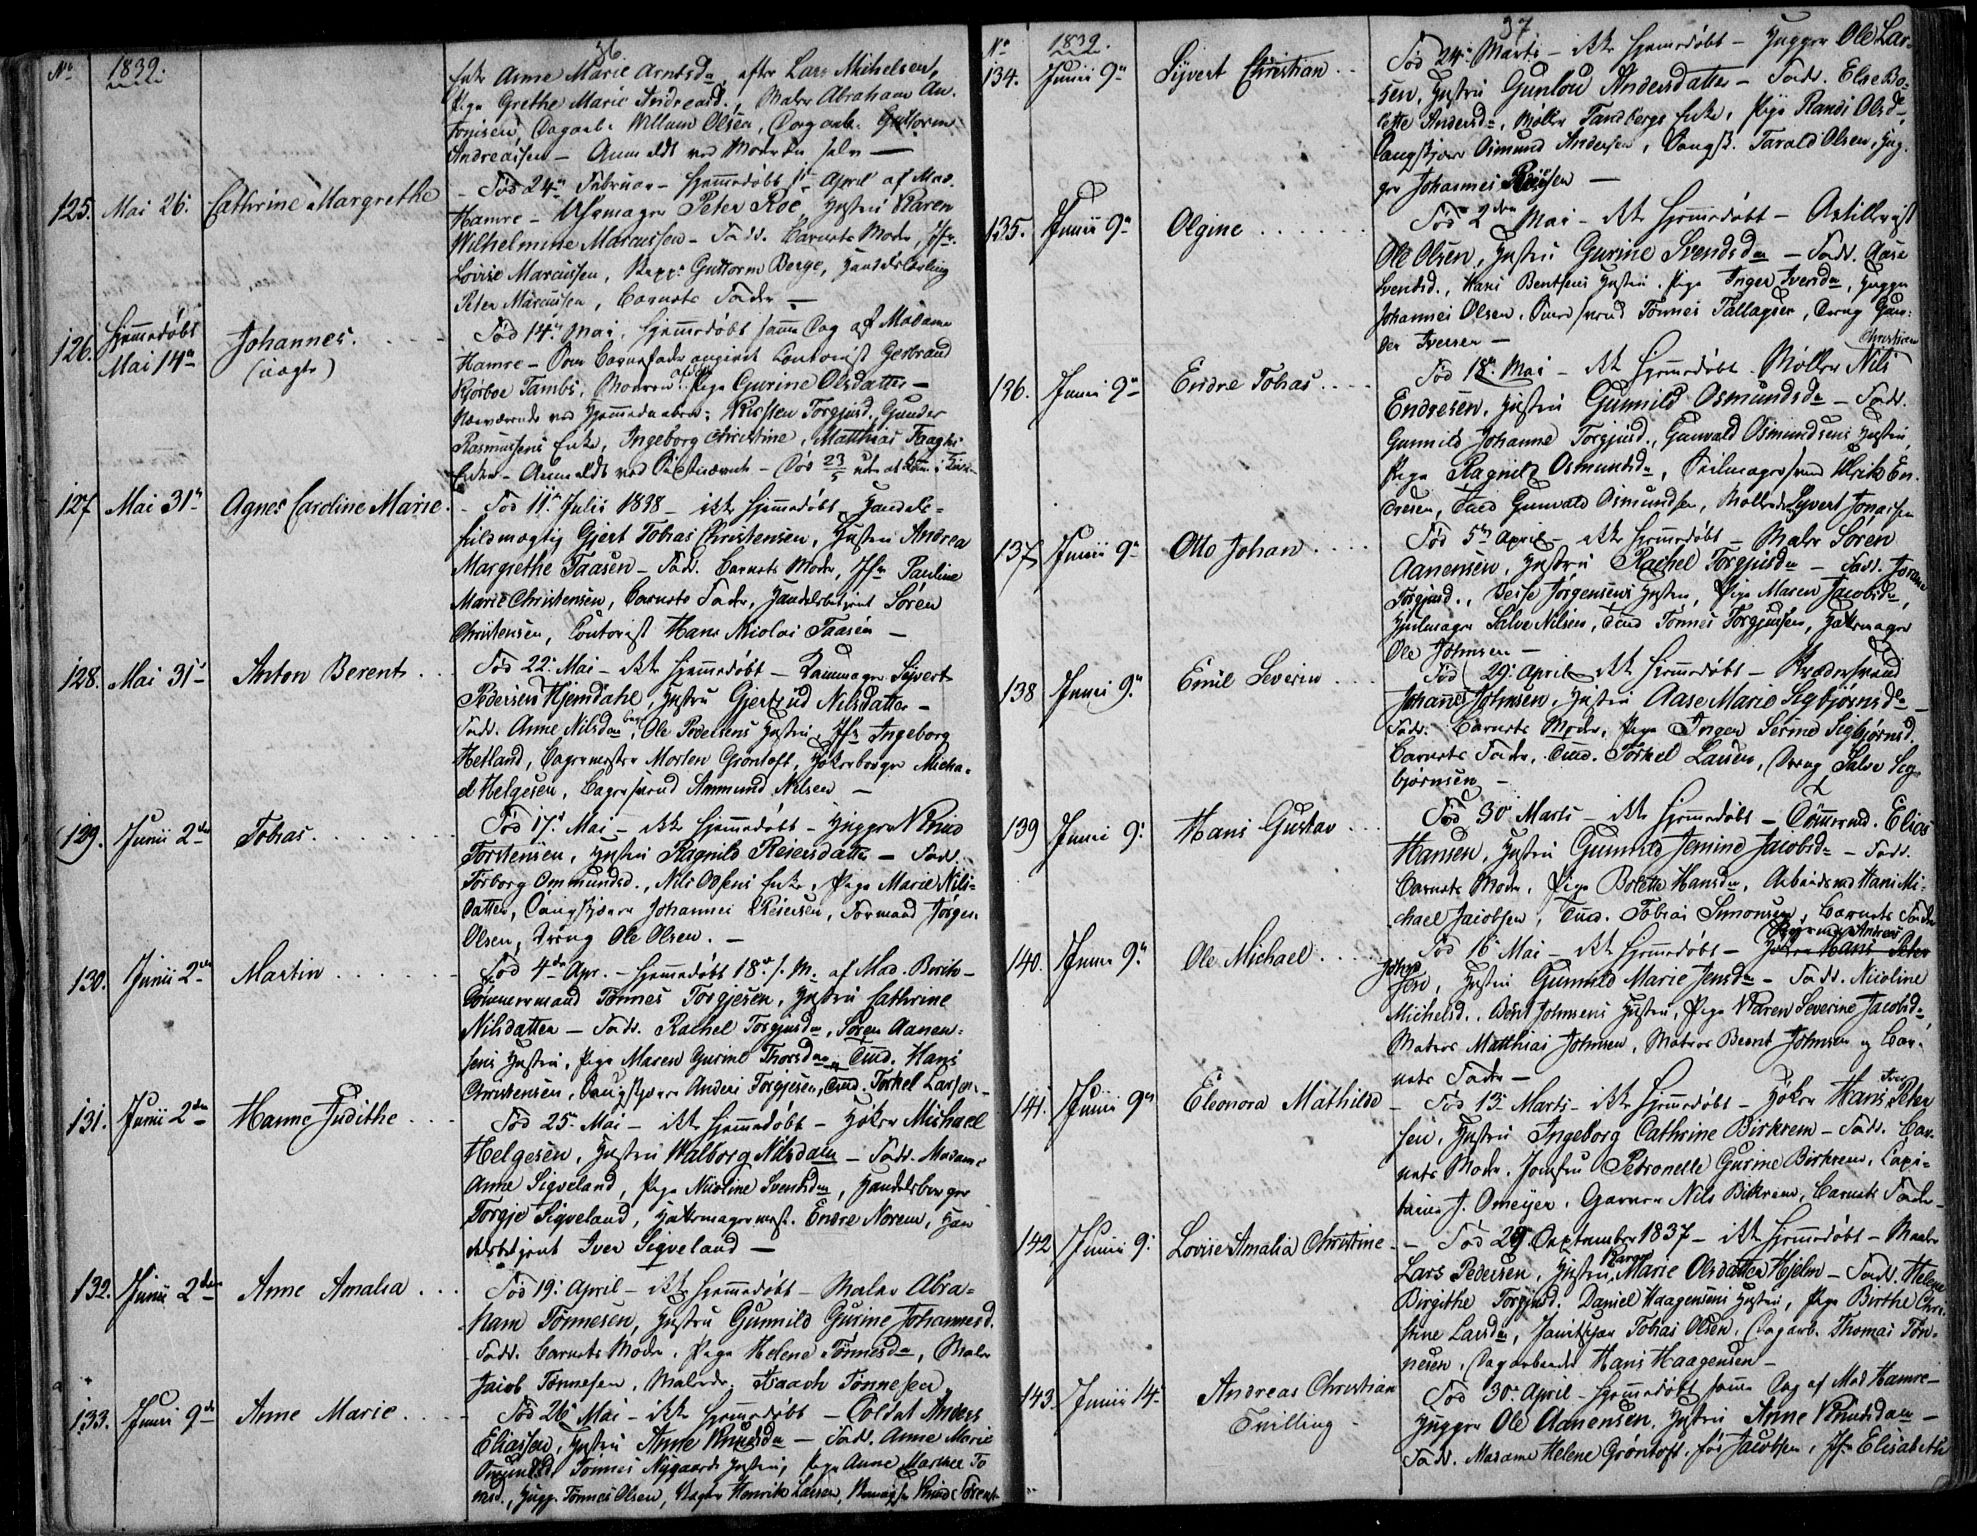 36
No 1839.
Enke Anne Marie Arntsd., efter Lars Michelsen,
Pige Grethe Marie Andreasd., Maler Abraham An-
tonisen, Dagarb. Willum Olsen, Dagarb. Guttorm
Andreassen - Anmeldt ved Moderen selv -
125. Mai 26. Cathrine Margrethe
Fød 24 Februar - hjemmedøbt April af Mad.
Hamre - Uhrmager Peter Roe, Hustru Karen
Wilhelmine Marcussen - Fadd. Barnets Moder, Jfr.
Lovise Marcussen, Guttorm Berge, Handelslærling
Peter Marcussen, Barnets Fader -
126. Hjemmedøbt Mai 14 Johannes. (uægte)
Fød 14 Mai, hjemmedøbt samme Dag af Madame
Hamre - Som Barnefader angivet Contorist Gerbrand
Kjørboe Tambs, Moderen Pige Gurine Olsdatter -
Nærværende ved Hjemmedaaben: Kirsten Torgjusd., Gunder
Rasmussens Enke, Ingeborg Christine, Matthias Haaghs
Enke - Anmeldt ved - Død 23/5 uden at komme i Kirke
127 Mai 31 Agnes Caroline Marie.
Fød 11 Julii 1838 - ikke hjemmedøbt, Handels-
fuldmægtig Gjert Tobias Christensen, Hustru Andrea
Margrethe Faasen - Fadd. Barnets Moder, Jfr Pauline
Marie Christensen, Barnets Fader, Handelsbetjent Søren
Christensen, Contorist Hans Nicolai Faasen -
128. Mai 31 Anton Berent ..
Fød 22 Mai - ikke hjemmedøbt - Kammager Sivert
Pedersen Hjemdahl, Hustru Gjertrud Nilsdatter -
Fadd. Anne Nilsdatter, Ole Pedersens Hustru, Jfr Ingeborg
Hetland, Bagermester Morten Grøntoft, Høkerborger Micha-
el Helgesen, Bagersvend Ammund Nilsen -
129. Junii 2den Tobias.
Fød 17 Mai - ikke hjemmedøbt - Hugger Knud
Torstensen, Hustru Ragnild Reiersdatter - Fadd.
Torborg Ommundsd., Nils Olsens Enke, Pige Marie Nils-
datter, Baugskjører Johannes Reiersen, Formand Jørgen
Olsen, Dreng Ole Olsen. -
130. Junii 2den Martin
Fød 4de Apr. - hjemmedøbt 18 s. M. af Mad. Borch -
Tømmermand Tønnes Torgjesen, Hustru Cathrine
Nilsdatter - Fadd. Rachel Torgjusd., Søren Aanen-
sens Hustru, Pige Maren Gurine Thorsd., Tmd. Hans
Christensen, Baugskjører Anders Torgjesen, Tmd. Torkel Larsen -
131. Junii 2den Hanne Judithe ..
Fød 25 Mai - ikke hjemmedøbt - Høker Michael
Helgesen, Hustru Walborg Nilsdatter - Fadd. Madame
Anne Sigveland, Pige Nicoline Svendsd., Handelsborger
Torgje Sigveland, Hattemagermest. Endre Norem, Han-
delsbetjent Iver Sigveland -
132. Junii 2den Anne Amalia ...
Fød 19 April - ikke hjemmedøbt - Maler Abra-
ham Tønnesen, Hustru Gunnild Gurine Johannesd.
Fadd. Barnets Moder, Pige Helene Tønnesd., Maler
Jacob Tønnesen, Malerdr. Isaach Tønnesen
133. Junii 9de Anne Marie ....
Fød 26 Mai - ikke hjemmedøbt - Soldat Anders
Eliassen, Hustru Anne Knudsd. - Fadd. Anne Marie
Tønnes Nygaards Hustru, Pige Anne Marthe To-
resd., Hugg. Tønnes Olsen, Henrik Larsen, Knud Torsens.
37.
No 1839.
134. Junii 9 Sijvert Christian ..
Fød 24 Marts - ikke hjemmedøbt - Hugger Ole Lar-
sen, Hustru Gunlou Andersdatter - Fadd. Else Bo-
lette Andersd., Møller Tandbergs Enke, Pige Randi Olsd.,
Baugskjører Osmund Andersen, Baugsk. Tarald Olsen, Hug-
ger Johannes Reiersen -
135. Junii 9 Olgine ......
Fød 2den Mai - ikke hjemmedøbt - Artillerist
Ole Olsen, Hustru Gurine Svendsd. - Fadd. Aase
Svendsd., Hans Bentsens Hustru, Pige Inger Iversd., Hugger
Johannes Olsen, Smedsvend Tønnes Tallagsen, Dreng Gun-
der Iversen -
136. Junii 9 Endre Tobias ....
Fød 18 Mai - ikke hjemmedøbt - Møller Nils Christian
Endresen, Hustru Gunnild Osmundsd. - Fadd.
Gunnild Johanne Torgjusd., Gunvald Osmundsens Hustru,
Pige Ragnild Osmundsd., Seilmagersvend Ulrik En-
dresen, Tmd Gunvald Osmundsen, Sijvert Jonassen
137 Junii 9 Otto Johan ....
Fød 5te April - ikke hjemmedøbt - Maler Søren
Aanensen, Hustru Rachel Torgjusd. - Fadd. Torane
Torgjusd., Peise Jørgensens Hustru, Pige Maren Jacobsd.,
Hjulmager Salve Nilsen, Tmd Tønnes Torgjusen, Hattemager
Ole Johnsen -
138 Junii 9 Emil Severin ...
Fød 29 April ikke hjemmedøbt -
Johannes Johnsen, Hustru Aase Marie Segbjørnsd. -
Fadd. Barnets Moder, Pige Inger Serine Sigbjørnsd.
Barnets Fader, Tmd. Torkel Larsen, Dreng Salve Seg-
bjørnsen -
139 Junii 9 Hans Gustav ...
Fød 30 Marts - ikke hjemmedøbt - Tømmermd. Elias
Hansen, Hustru Gunnild Jemine Jacobsd. - Fadd.
Barnets Moder, Pige Bolette Hansd., Arbeidsmd Hans Mi-
chael Jacobsen, Tmd. Tobias Simonsen, Barnets Fader
140. Junii 9 Ole Michael ....
Fød 16 Mai - ikke hjemmedøbt - Andreas Hans Peter
Johnsen, Hustru Gunnild Marie Jensd. - Fadd. Nicoline
Michelsd., Bent Johnsens Hustru, Pige Karen Severine Jacobsd.,
Matros Matthias Johnsen, Matros Bernt Johnsen og Bar-
nets Fader -
141. Junii 9 Eleonora Mathilde
Fød 13 Marts - ikke hjemmedøbt - Høker Hans Peter Iver-
sen, Hustru Ingeborg Cathrine Birkrem - Fadd. Bar-
nets Moder, Jomfru Petronelle Gurine Birkrem, Capi-
taine J. Omeyer, Garver Nils Birkrem, Barnets Fader -
142 Junii 9 Lovise Amalia Christine
Fød 29 September 1837 - ikke hjemmedøbt - Maaler
Lars Pedersen, Hustru Karen Marie Olsdatter Hjelm - Fadd. Helene
Birgithe Torgjusd. Daniel Haagensens Hustru, Pige Berthe Chri-
stine Larsd., Tobias Olsen, Dagarb. Thomas Tøn-
nesen, Dagarbeider Hans Haagensen -
143. Junii 14 Andreas Christian Tvilling
Fød 30 April - hjemmedøbt samme Dag af Mad Hamre -
Hugger Ole Aanensen, Hustru Anne Knudsdatter -
Fadd. Madame Helene Grøntoft, før Jacobsen, Jfr Elisabeth